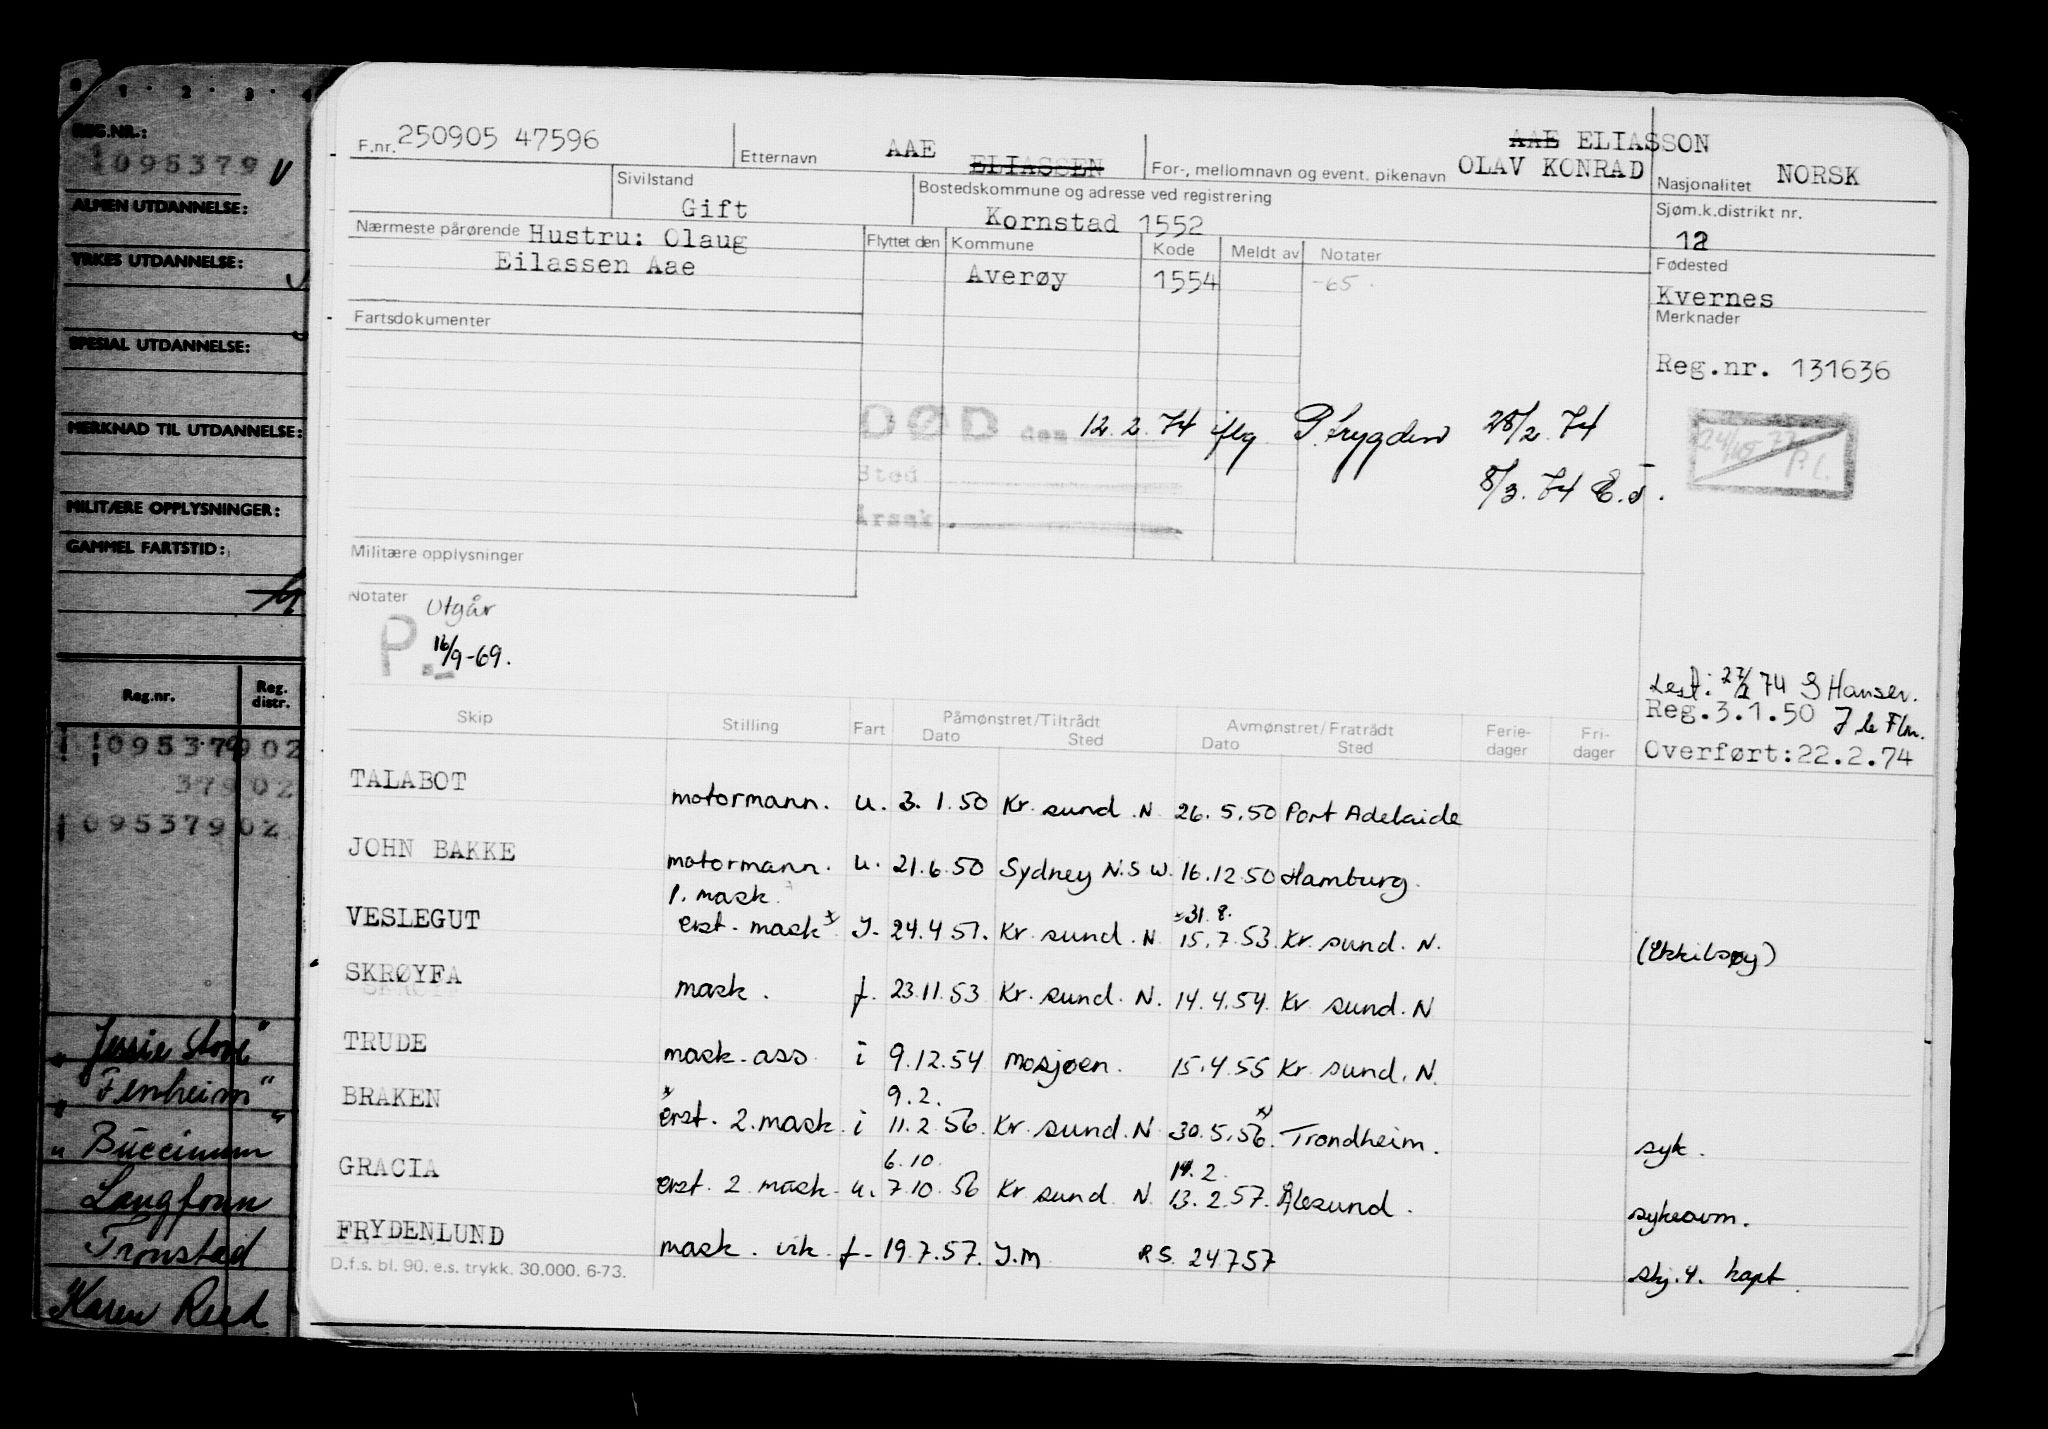 0 1 2 3 4
REG.NR.:
1095379
ALMEN UTDANNELSE:
YRKES UTDANNELSE:
SPESIAL UTDANNELSE:
MERKNAD TIL UTDANNELSE:
MILITÆRE OPPLYSNINGER:
GAMMEL FARTSTID:
Reg.nr. Reg. distr.
1095379 02
379 02
1095379 02
"Jessie Stove"
"Fernheim"
"Buccinum"
Langfonn
Tronstad
Karen Reed
F.nr. 250905 47596
Etternavn AAE ELIASSEN
For-, mellomnavn og event. pikenavn AAE ELIASSON
OLAV KONRAD
Nasjonalitet NORSK
Sivilstand
Gift
Bostedskommune og adresse ved registrering
Kornstad 1552
Sjøm.k.distrikt nr.
12
Nærmeste pårørende Hustru: Olaug
Eilassen Aae
Flyttet den Kommune Kode Meldt av Notater
Averøy 1554 -65.
Fødested
Kvernes
Merknader
Reg.nr. 131636
Fartsdokumenter
DØD den 12.2.74 iflg P.trygden 28/2.74
Sted 8/3.74 E.J.
Årsak
Militære opplysninger
Notater Utgår
P. 16/9-69.
Lest: 27/2 74 S Hansen.
Reg.3.1.50
Overført:22.2.74
Skip Stilling Fart Påmønstret/Tiltrådt Avmønstret/Fratrådt Ferie- Fri-
Dato Sted Dato Sted dager dager
TALABOT motormann. u. 3.1.50 Kr.sund.N 26.5.50 Port Adelaide
JOHN BAKKE motormann. u. 21.6.50 Sydney N.S.W. 16.12.50 Hamburg.
1. mask. x31.8.
VESLEGUT erst. mask x J. 24.4 51. Kr.sund.N 15.7.53. Kr.sund.N. (Ekkilsøy)
SKRØYFA mask. f. 23.11.53 Kr.sund.N. 14.4.54. Kr.sund.N
TRUDE mask.ass. i 9.12.54 Mosjøen. 15.4.55 Kr.sund.N.
9.2.
BRAKEN x erst. 2.mask. i 11.2.56. Kr.sund.N 30.5.56. x Trondheim. syk.
6.10. 14.2.
GRACIA erst. 2 mask. u. 7.10.56 Kr.sund N. 13.2.57. Ålesund. sykeavm.
FRYDENLUND mask. vik. f. 19.7.57. J.M RS. 24757 skj.4. kapt.
D.f.s. bl. 90. e.s. trykk. 30.000. 6-73.